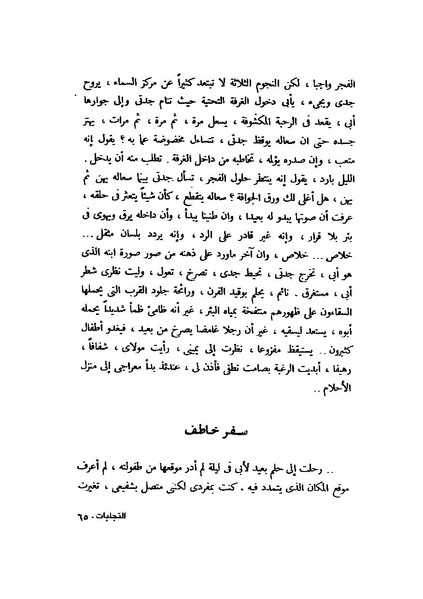 الفجر واجبا ، لكن النجوم الثلاثة لا تبتعد كثيراً عن مركز السماء ، يروح
جدى ويجىء ، يأبى دخول الغرفة التحتية حيث تنام جدتى وإلى جوارها
أبى ، يقعد فى الرحبة المكشوفة ، يسعل مرة ، ثم مرة ، ثم مرات ، يهتز
جسده حتى ان سعاله يوقظ جدتى ، تتساءل مخضوضة عما به ؟ يقول إنه
متعب ، وإن صدره يؤلمه ، تخاطبه من داخل الغرفة . تطلب منه أن يدخل .
الليل بارد ، يقول إنه ينتظر حلول الفجر ، تسأل جدتى بينما سعاله يهن ثم
يهن ، هل أغلى لك ورق الجوافة ؟ سعاله يتقطع ، كأن شيئاً يتعثر فى حلقه ،
عرفت أن صوتها يبدو له بعيدا ، وان طنينا يبدأ ، وأن داخله يرق ويهوى فى
بئر بلا قرار ، وإنه غير قادر على الرد ، وإنه يردد بلسان مثقل ...
خلاص ... خلاص ، وان آخر ماورد على ذهنه من صور صورة ابنه الذى
هو أبى ، تخرج جدتى ، تحيط جدى ، تصرخ ، تعول ، وليت نظرى شطر
أبى ، مستغرق . نائم ، يحلم بوقيد الفرن ، ورائحة جلود القرب التى يحملها
السقامون على ظهورهم منتفخة بمياه البئر ، غير أنه ظامئ ظمأ شديداً يحمله
أبوه ، يستعد ليسقيه ، غير أن رجلا غامضا يصرخ من بعيد ، فيغدو أطفال
كثيرون .. يستيقظ مفزوعا ، نظرت إلى يمينى ، رأيت مولاى ، شفافاً ،
رهيفا ، أبديت الرغبة بصامت نطقى فأذن لى ، عندئذ بدأ معراجى إلى منزل
الأحلام ..
سفر خاطف
.. رحلت إلى حلم بعيد لأبى فى ليلة لم أدر موقعها من طفولته ، لم أعرف
موقع المكان الذى يتمدد فيه . كنت بمفردى لكننى متصل بشفيعى ، تغيرت
التجليات . ٦٥